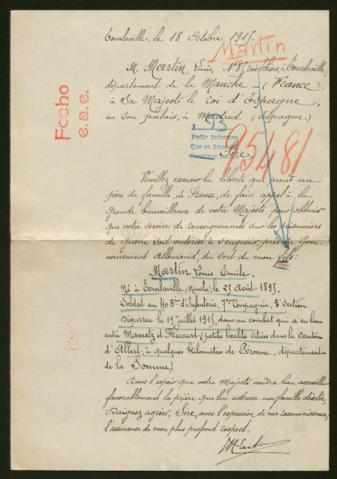 Tourlaville le 18 Octobre 1915.
Martin
M. Martin Louis, N° 85, rue Thiers, à Tourlaville,
département de la Manche - (France)
à Sa Majesté le Roi d'Espagne,
en son palais, à Madrid (Espagne)
Fecho
e.a.e.
93
Pedir informes
Que se haga
95481
Sire
Veuillez excuser la liberté que prend un
père de famille de France, de faire appel à la
Grande bienveillance de votre Majesté, pour obtenir
que votre service de renseignements sur les prisonniers
de Guerre, soit autorisé à s'enquérir, près le Gou-
vernement allemand, du sort de mon fils:
Martin Louis Emile.
Né à Tourlaville (Manche) le 25 Août 1895.
Soldat au d'Infanterie, Compagnie, Section
Disparu le 19 Juillet 1915, dans un combat qui a eu lieu
entre Mametz et Fricourt (petites localités situées dans le Canton
d'Albert, à quelques kilomètres de Péronne, département
de la Somme)
Dans l'espoir que votre Majesté voudra bien accueillir
favorablement la prière que lui adresse une famille désolée,
Daignez agréer, Sire, avec l'expression de ma reconnaissance,
l'assurance de mon plus profond respect.
Martin